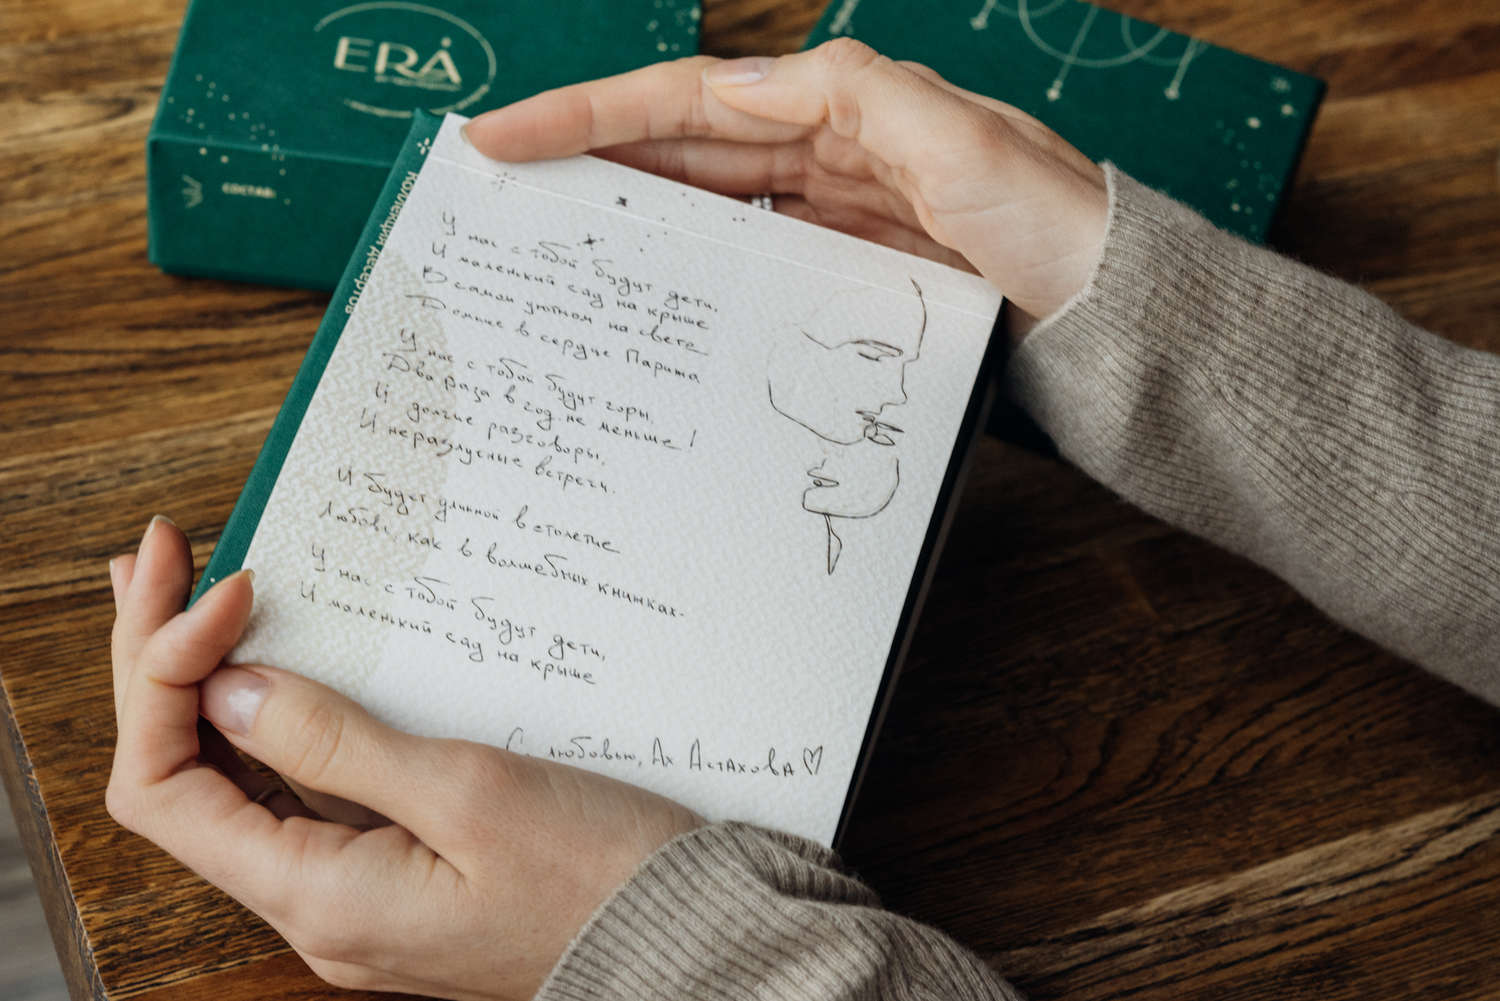 ERA
СОСТАВ:
Коллекция десертов
У нас с тобой будут дети,
И маленький сад на крыше
В самом уютном на свете
Домике в сердце Парижа
У нас с тобой будут горы,
Два раза в год, не меньше!
И долгие разговоры,
И неразлучные встречи.
И будет длиной в столетие
Любовь, как в волшебных книжках-
У нас с тобой будут дети,
И маленький сад на крыше
С любовью, Ах Астахова ♡